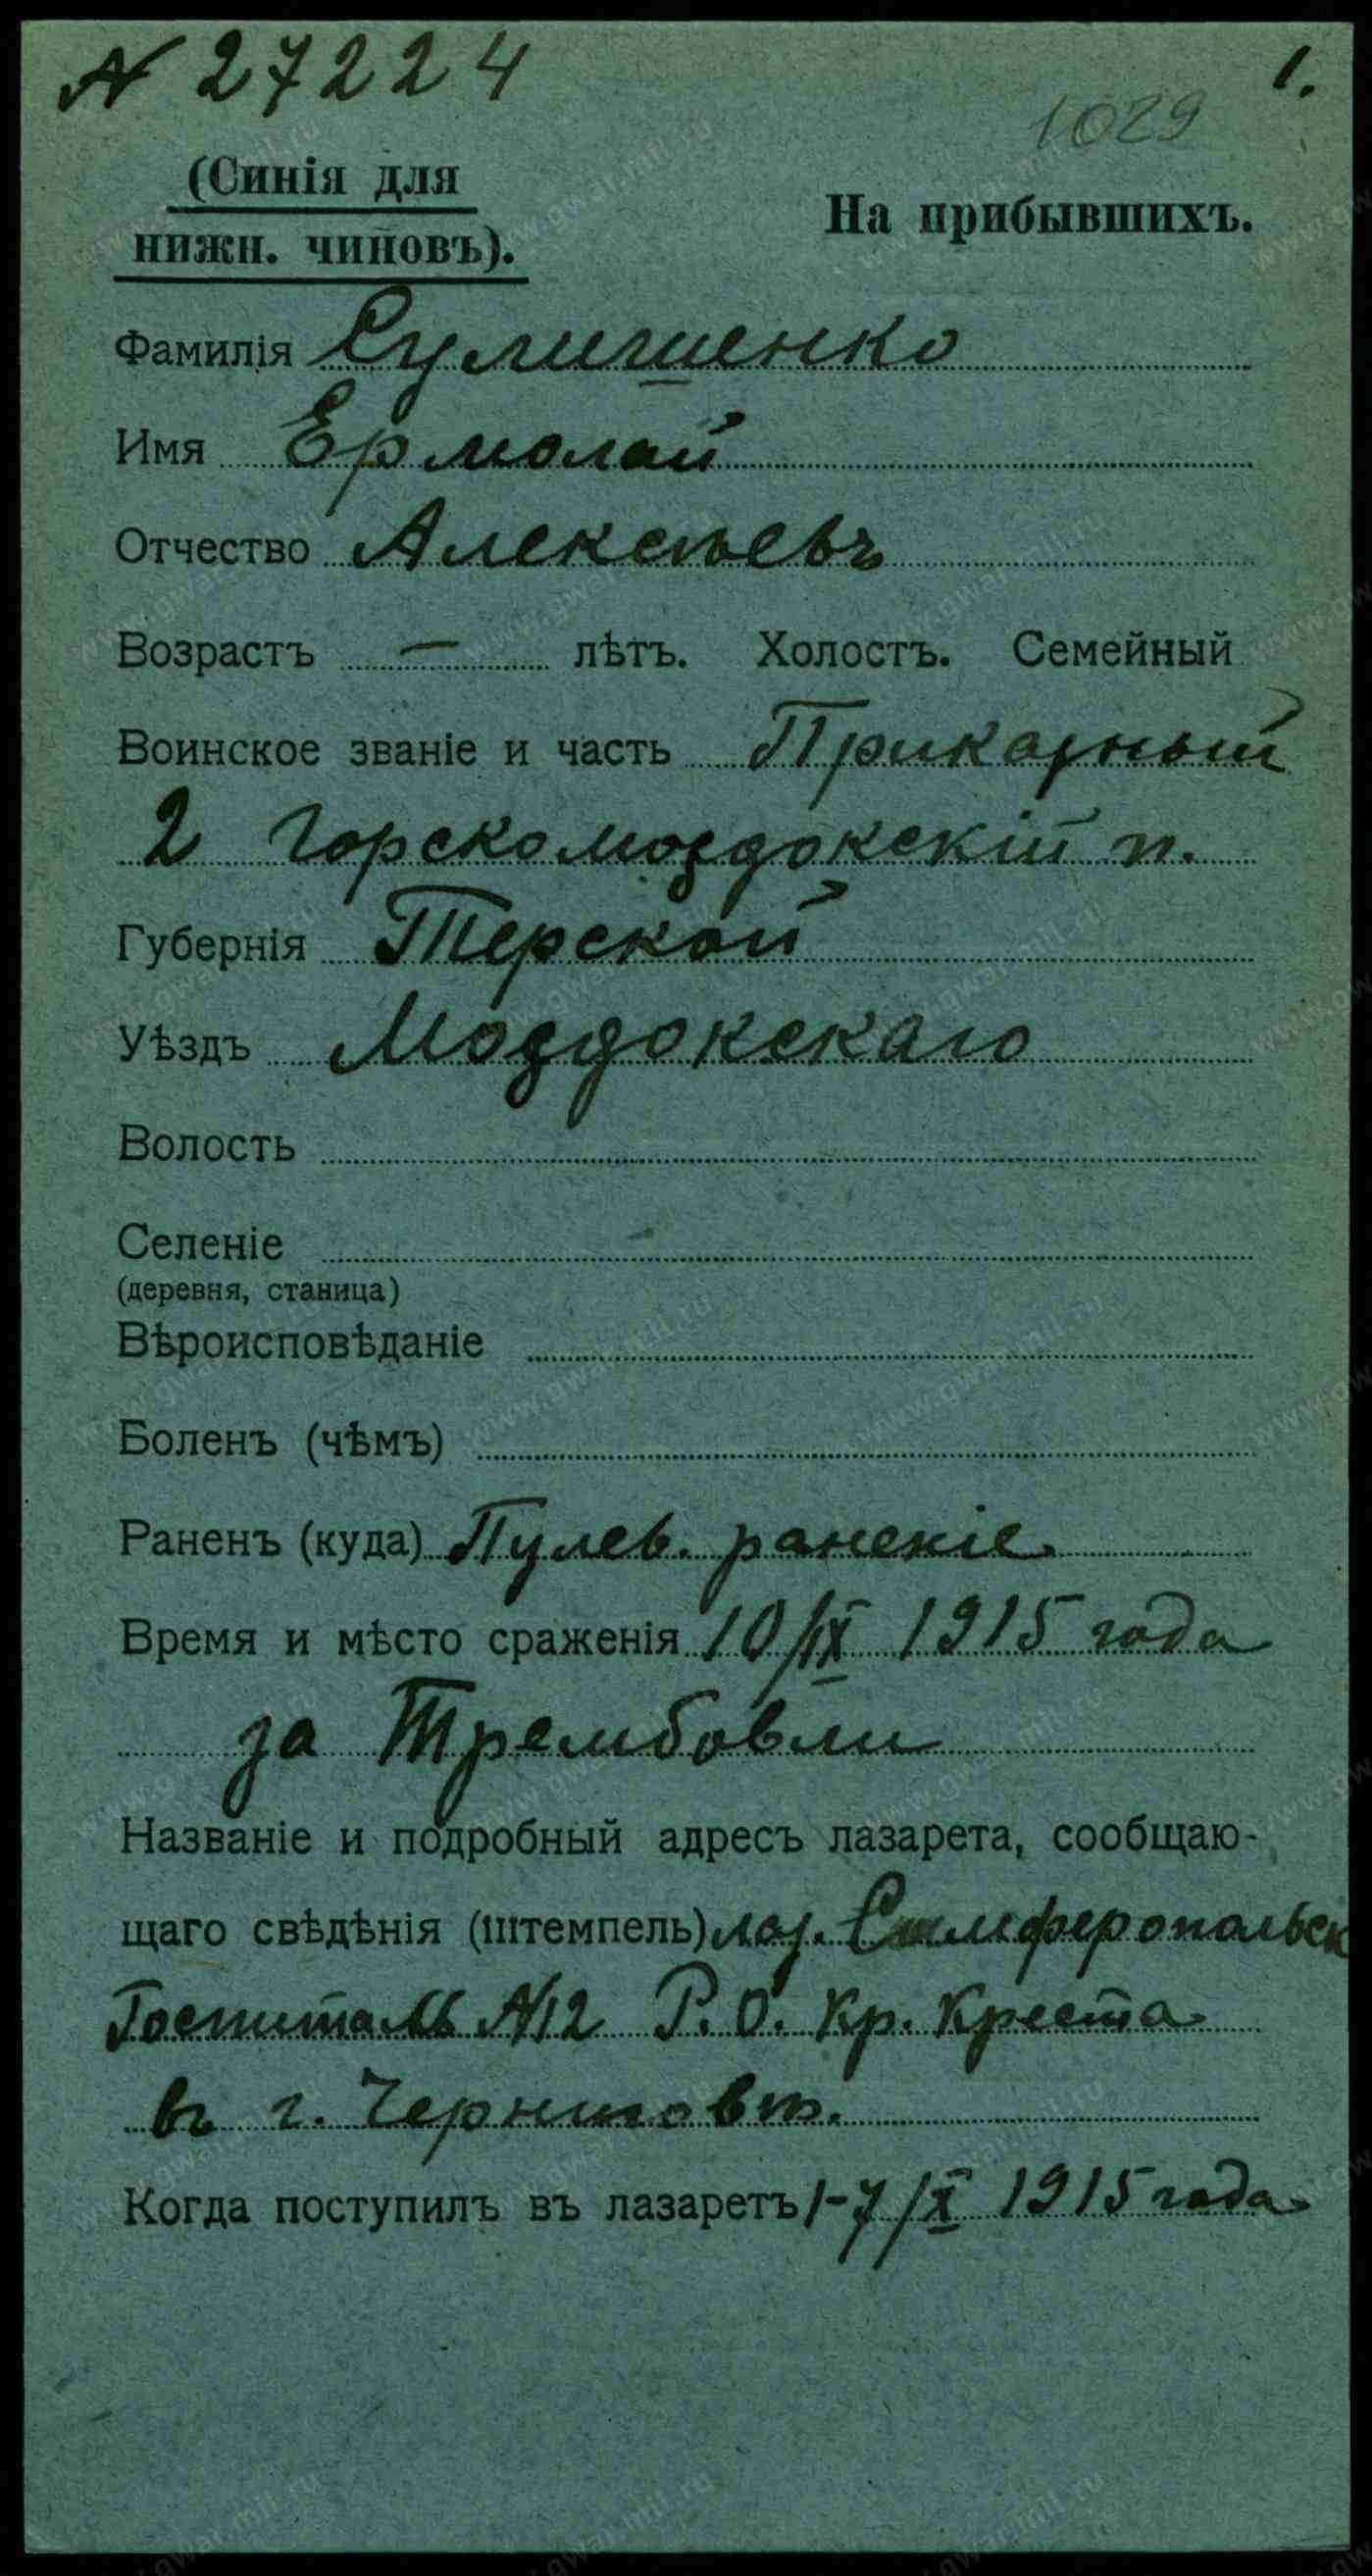 N 27224
1.
1029
(Синія для
нижн. чиновъ).
На прибывшихъ.
Фамилія Сулишенко
Имя Ермолай
Отчество Алексѣевъ
Возрастъ — лѣтъ. Холостъ. Семейный
Воинское званіе и часть Приказный
2 Горскомоздокскій п.
Губернія Терской
Уѣздъ Моздокскаго
Волость
Селеніе
(деревня, станица)
Вѣроисповѣданіе
Боленъ (чѣмъ)
Раненъ (куда) Пулев. раненіе
Время и мѣсто сраженія 10/IX 1915 года
за Трембовли
Названіе и подробный адресъ лазарета, сообщаю-
щаго свѣдѣнія (штемпель) лаз. Симферопольск
Госпиталь №12 Р. О. Кр. Креста
въ г. Черниговѣ.
Когда поступилъ въ лазаретъ 1-7/X 1915 года